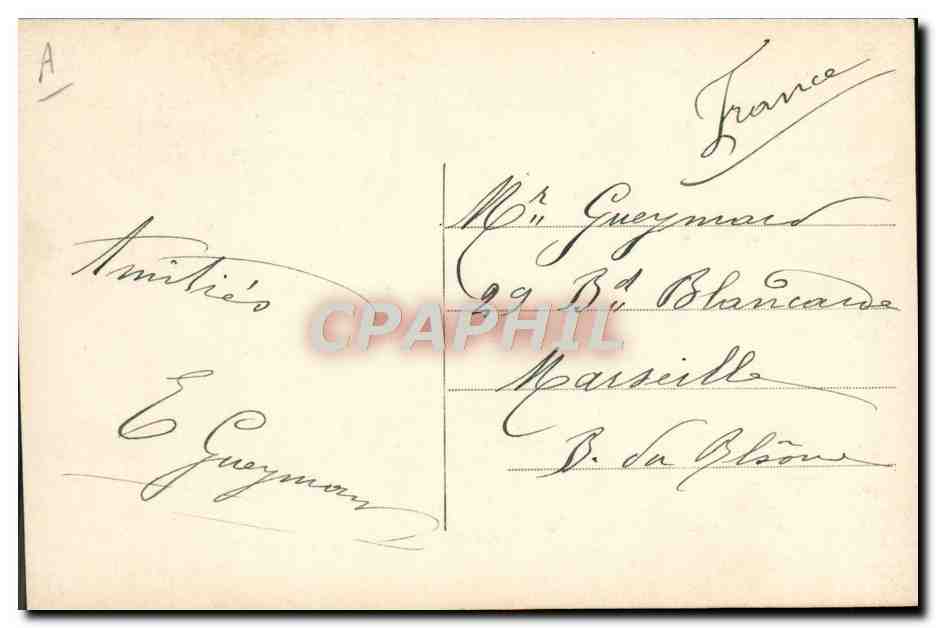 A
France
Amitiés
E Gueymard
Mr Gueymard
29 Bd Blancarde
Marseille
B. du Rhône
CPAPHIL